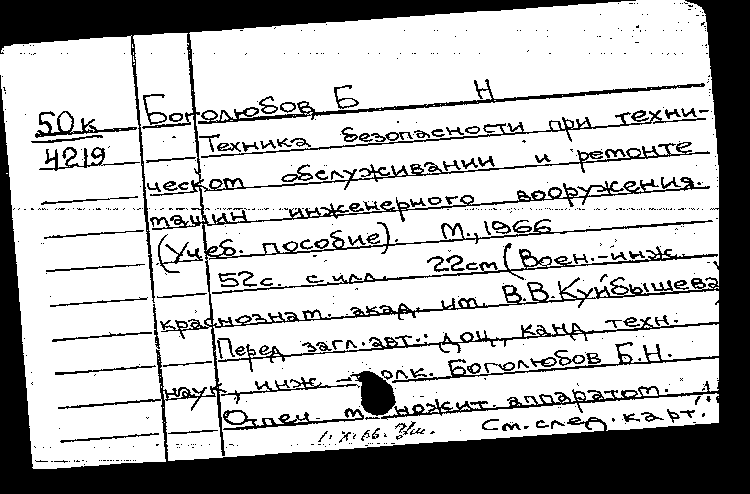 50к
4219
Боголюбов, Б Н
Техника безопасности при техни-
ческом обслуживании и ремонте
машин инженерного вооружения.
(Учеб. пособие). М., 1966
52с. с илл. 22см (Воен.-инж.
краснознам. акад. им. В.В.Куйбышева
Перед загл. авт.: доц., канд. техн.
наук, инж.-полк. Боголюбов Б.Н.
Отпеч. множит. аппаратом.
См. след. карт.
1.X.66.